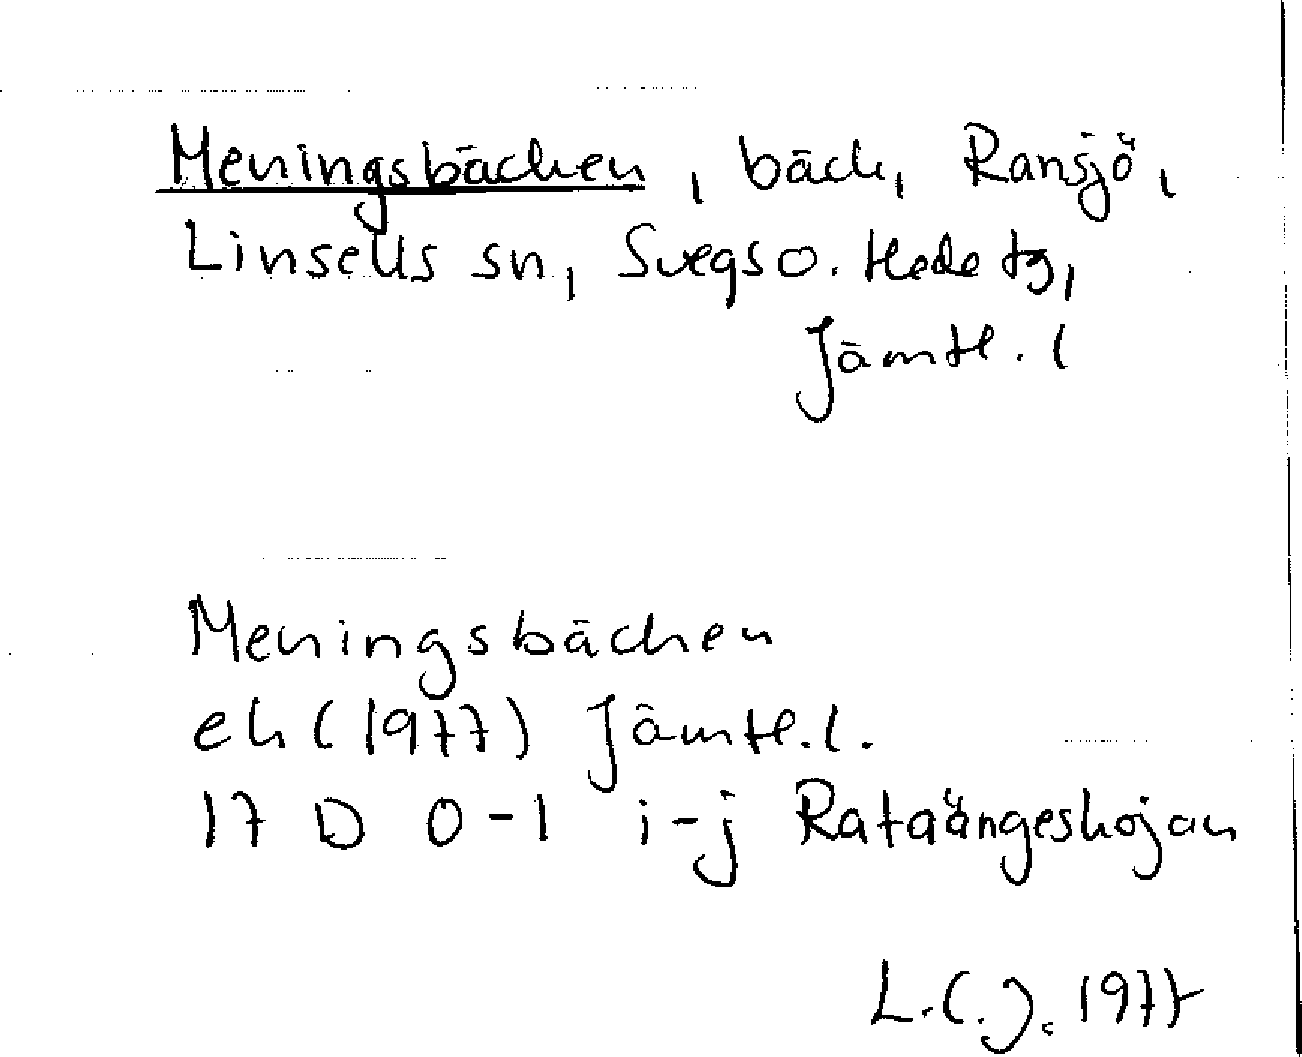 Meningsbäcken, bäck, Ransjö,
Linsells sn, Svegs o. Hede tg,
Jämtl. l
Meningsbäcken
ek (1977) Jämtl. l.
17 D 0-1 i-j Rataängeskojan
L.C.J. 1977